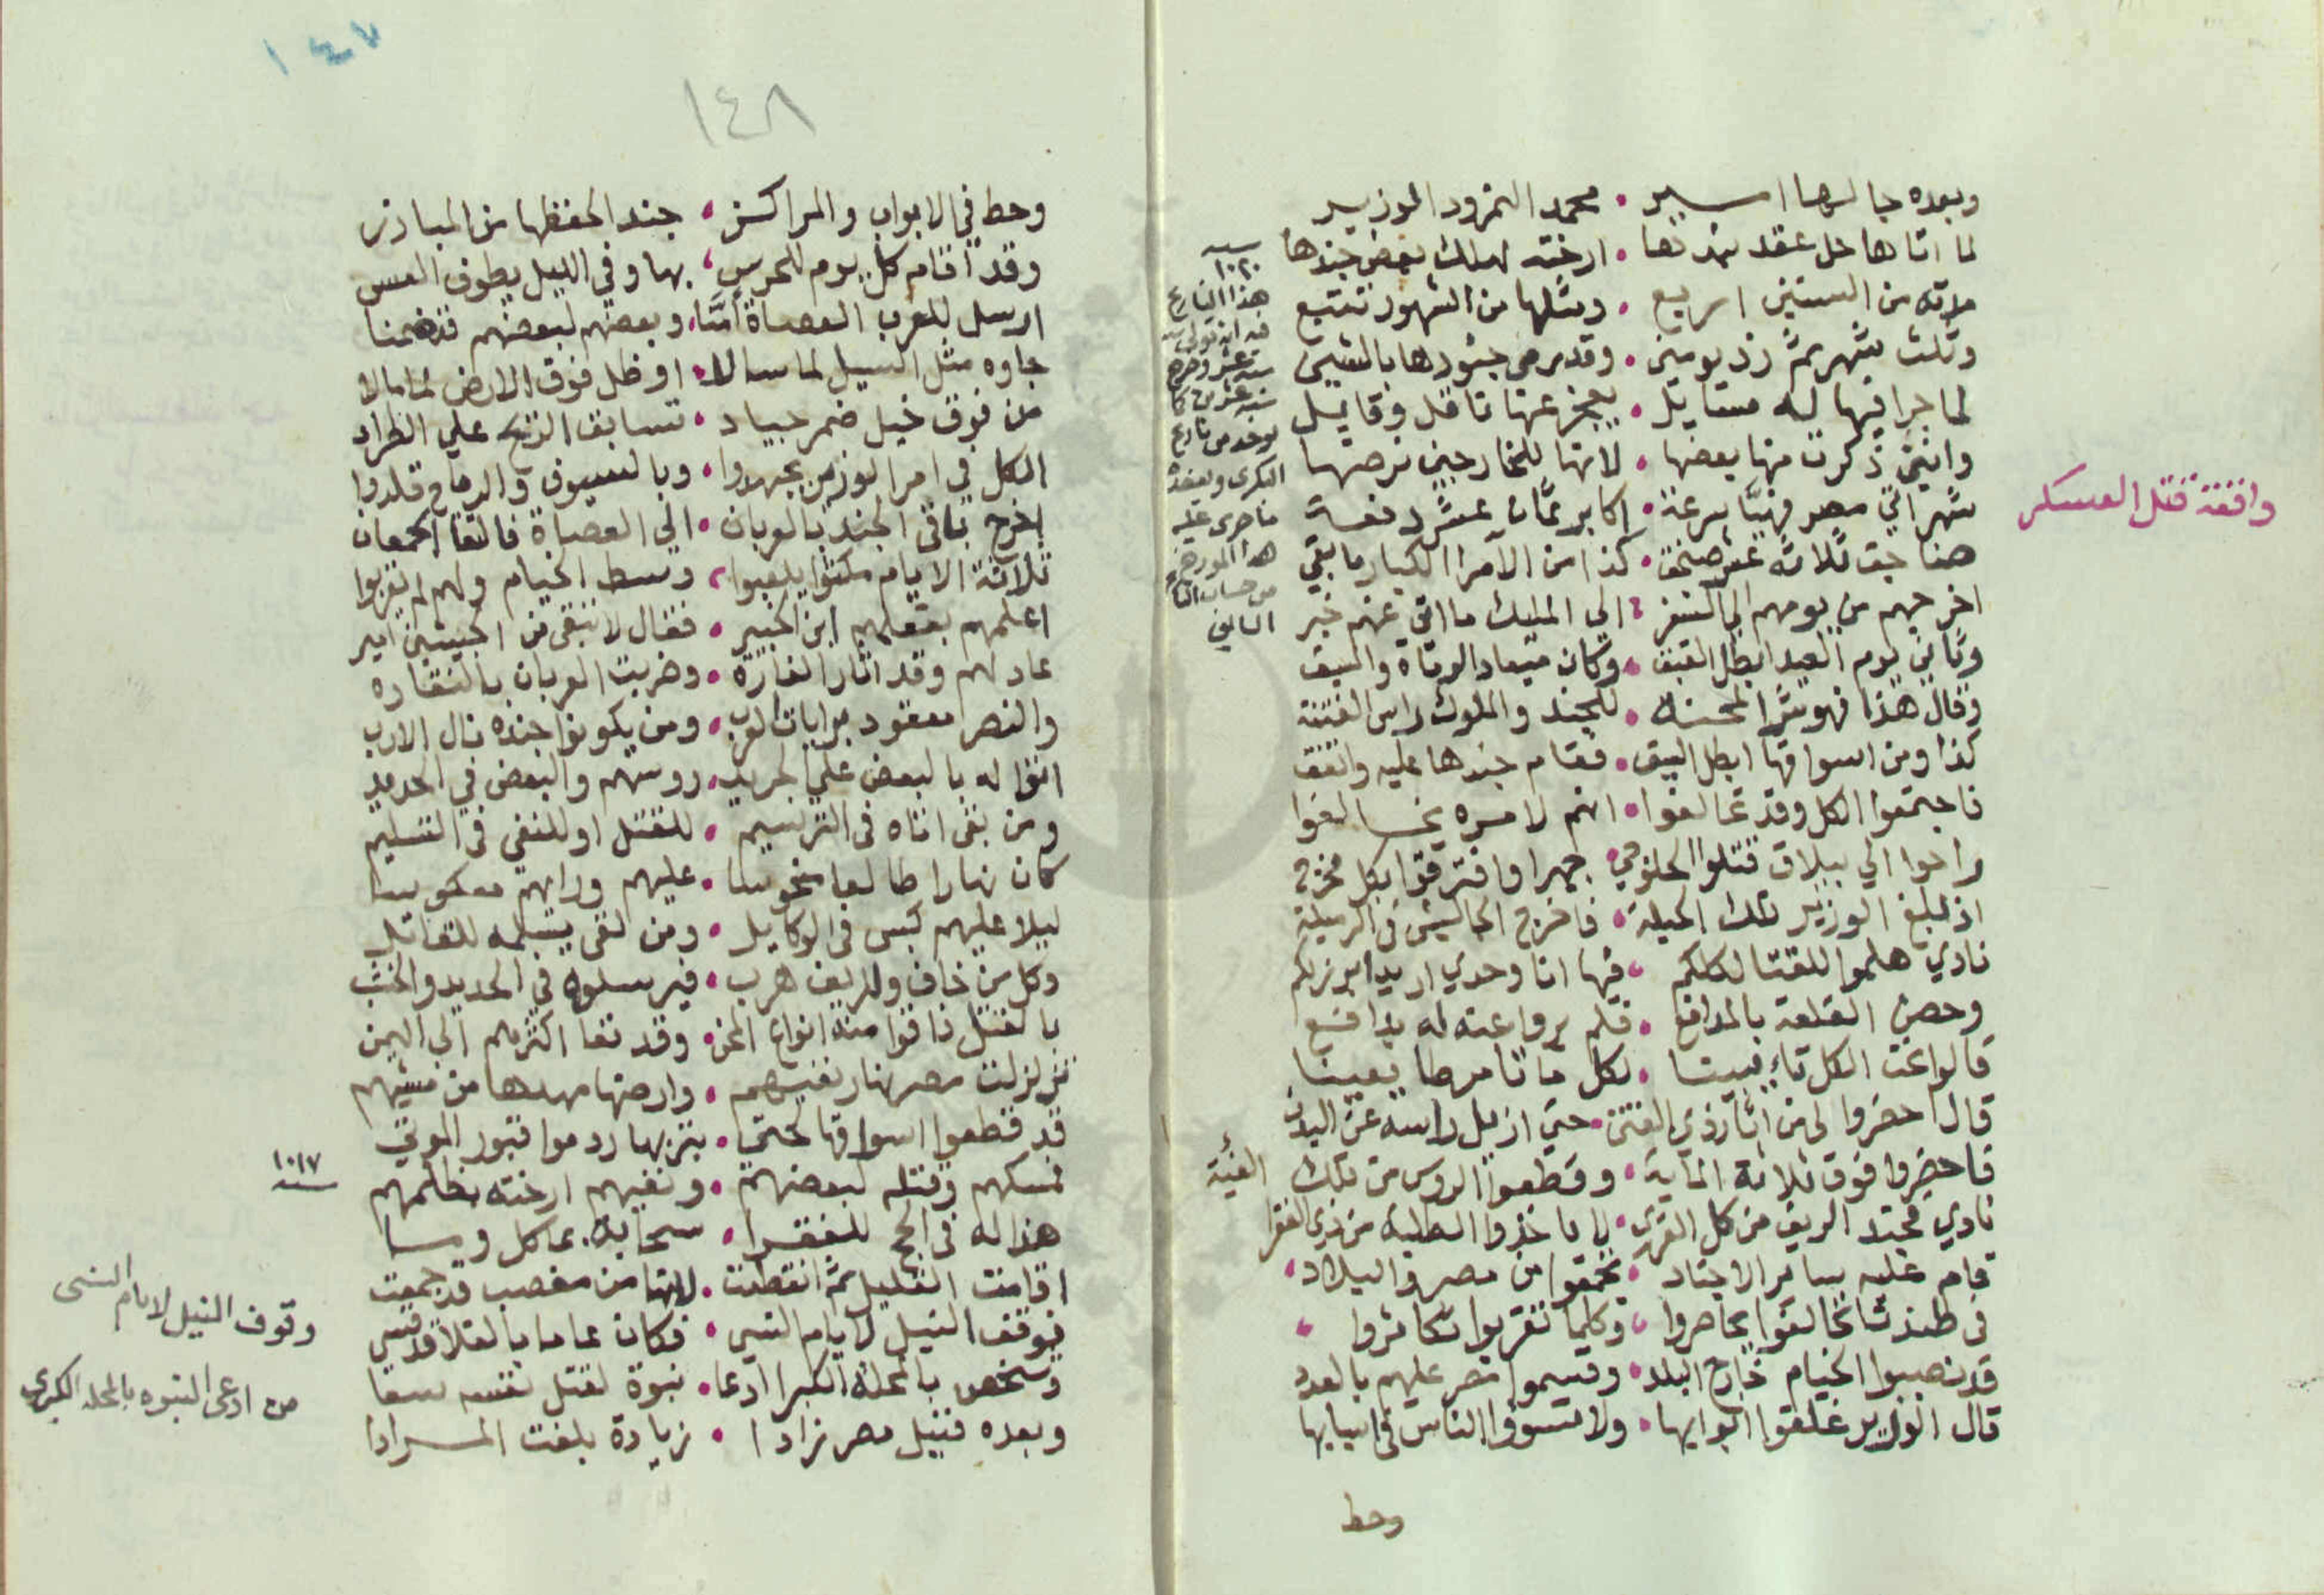 وبعده جا لها اسير • محمد النمرود الوزير
لما اتاها حل عقد بندها • ارخته لملك بعض جندها
مدته من السنين اربع • ومثلها من الشهور تتبع
وثلث شهر ثم زد يومين • وقد رمى جنودها بالشين
لما جرا فيها له مسايل • يعجز عنها ناقل وقايل
وانني ذكرت منها بعضها • لانها للخارجين نرضها
شهر اتي مصر فهيا سرعة • اكابر ثمان عشر دفعة
هنا جق ثلاثة عشر صنجق • كذا من الامرا الكبار ما بقي
اخرجهم من يومهم الي السفر • الي المليك ما اتي عنهم خبر
وثاني يوم العيد ابطل القبق • وكان ميعاد الرماة والسبق
وقال هذا فهو شر المحنة • للجند والملوك راس الفتنة
كذا ومن اسواقها ابطل البيق • فقام جندها عليه واتفق
فاجتمعوا الكل وقد تحالفوا • انهم لامره يخالفوا
راحوا الي ببلاق قتلوا الحلوجي • جهرا وافترقوا بكل مخرج
اذ بلغ الوزير تلك الحيلة • فاخرج الجاليش في الرميلة
نادي هلموا للقتا لكلكم • فها انا وحدي اريد ابرزلكم
وحصن القلعة بالمدافع • فلم يروا عنه له يدافع
قالوا نحن الكل تايبينا • لكل ما تامر طايعينا
قال احضروا لي من اثار ذي الفتن • حتي ازيل راسه عن البدن
فاحضروا فوق ثلاثة الماية • وقطعوا الروس من تلك الفية
نادي مجند الريف من كل القرى • لا ياخذوا الطلبه من ذي الفقرا
قام عليه ساير الاجناد • تجمعوا من مصر والبلاد •
في طندتا تحالفوا تجاهروا • وكلما تقربوا تكاثروا •
قد نصبوا الخيام خارج البلد • وقسموا مصر عليهم بالعدد
قال الوزير غلقوا ابوابها • ولا تسوفوا الناس في اسبابها
وحط
واقعة قتل العسكر
سنة ١٠٢٠
هذا التاريخ
فيه انه تولى سنة
ستة عشر وخرج
سنة عشرين كما
يوخذ من تاريخ
البكري وبعضه
ما جرى عليه
هذا المورخ
من حساب التا
التاني
١٤٧
١٤٨
وحط في الابواب والمراكز • جند الحفظها من المبارز
وقد اقام كل يوم للحرس • بها وفي الليل يطوف العسس
ارسل للعرب العصاة امنا • وبعضهم لبعضهم قد ضمنا
جاوه مثل السيل لما سالا • او ظل فوق الارض لما مالا
من فوق خيل ضمر جياد • تسابق الريح علي الطراد
الكل في امر الوزير يجهدوا • وبالسيوف والرماح قلدوا
اخرج باقي الجند بالعربان • الي العصاة فالتقا الجمعان
ثلاثة الايام مكثوا يلعبوا • وسط الخيام ولهم لم يقربوا
اعلمهم بفعلهم ابن الخبير • فقال لا تبقي من الجيشين امير
عاد لهم وقد اثار الغارة • وضربت العربان بالنقاره
والنصر معقود برايات العرب • ومن يكونوا جنده نال الارب
اتوا له بالبعض علي الجريد • روسهم والبعض في الحديد
ومن بقي اتاه في الترسيم • للقتل او للنفي في التسليم
كان نهارا طالعا منحوسا • عليهم ورايهم معكوسا
ليلا عليهم كبس في الوكايل • ومن لقي يسلمه للقاتل
وكل من خاف وللريف هرب • فيرسلوه في الحديد والخشب
بالقتل ذاقوا منه انواع المحن • وقد نفا اكثرهم الي اليمن
تزلزلت مصر نهار نفيهم • وارضها مهدها من مشيهم
قد قطعوا اسواقها لحتي • بتربها ردموا قبور الموتي
لمسكهم وقتله لبعضهم • ونفيهم ارخته بظلمهم
هذا له في الحج للفقرا • سحابة بماكل وبسا
اقامت القليل ثم انقطعت • لانها من مغصب قد جمعت
توقف النيل لايام النسي • فكان عاما بالغلا قد نسي
وشخص بالمحلة الكبرا ادعا • نبوة لقتل نفسه سعا
وبعده فنيل مصر زادا • زيادة بلغت المرادا
١٠١٧ سنة
وقوف النيل لايام النسي
من ادعى النبوه بالمحله الكبرى